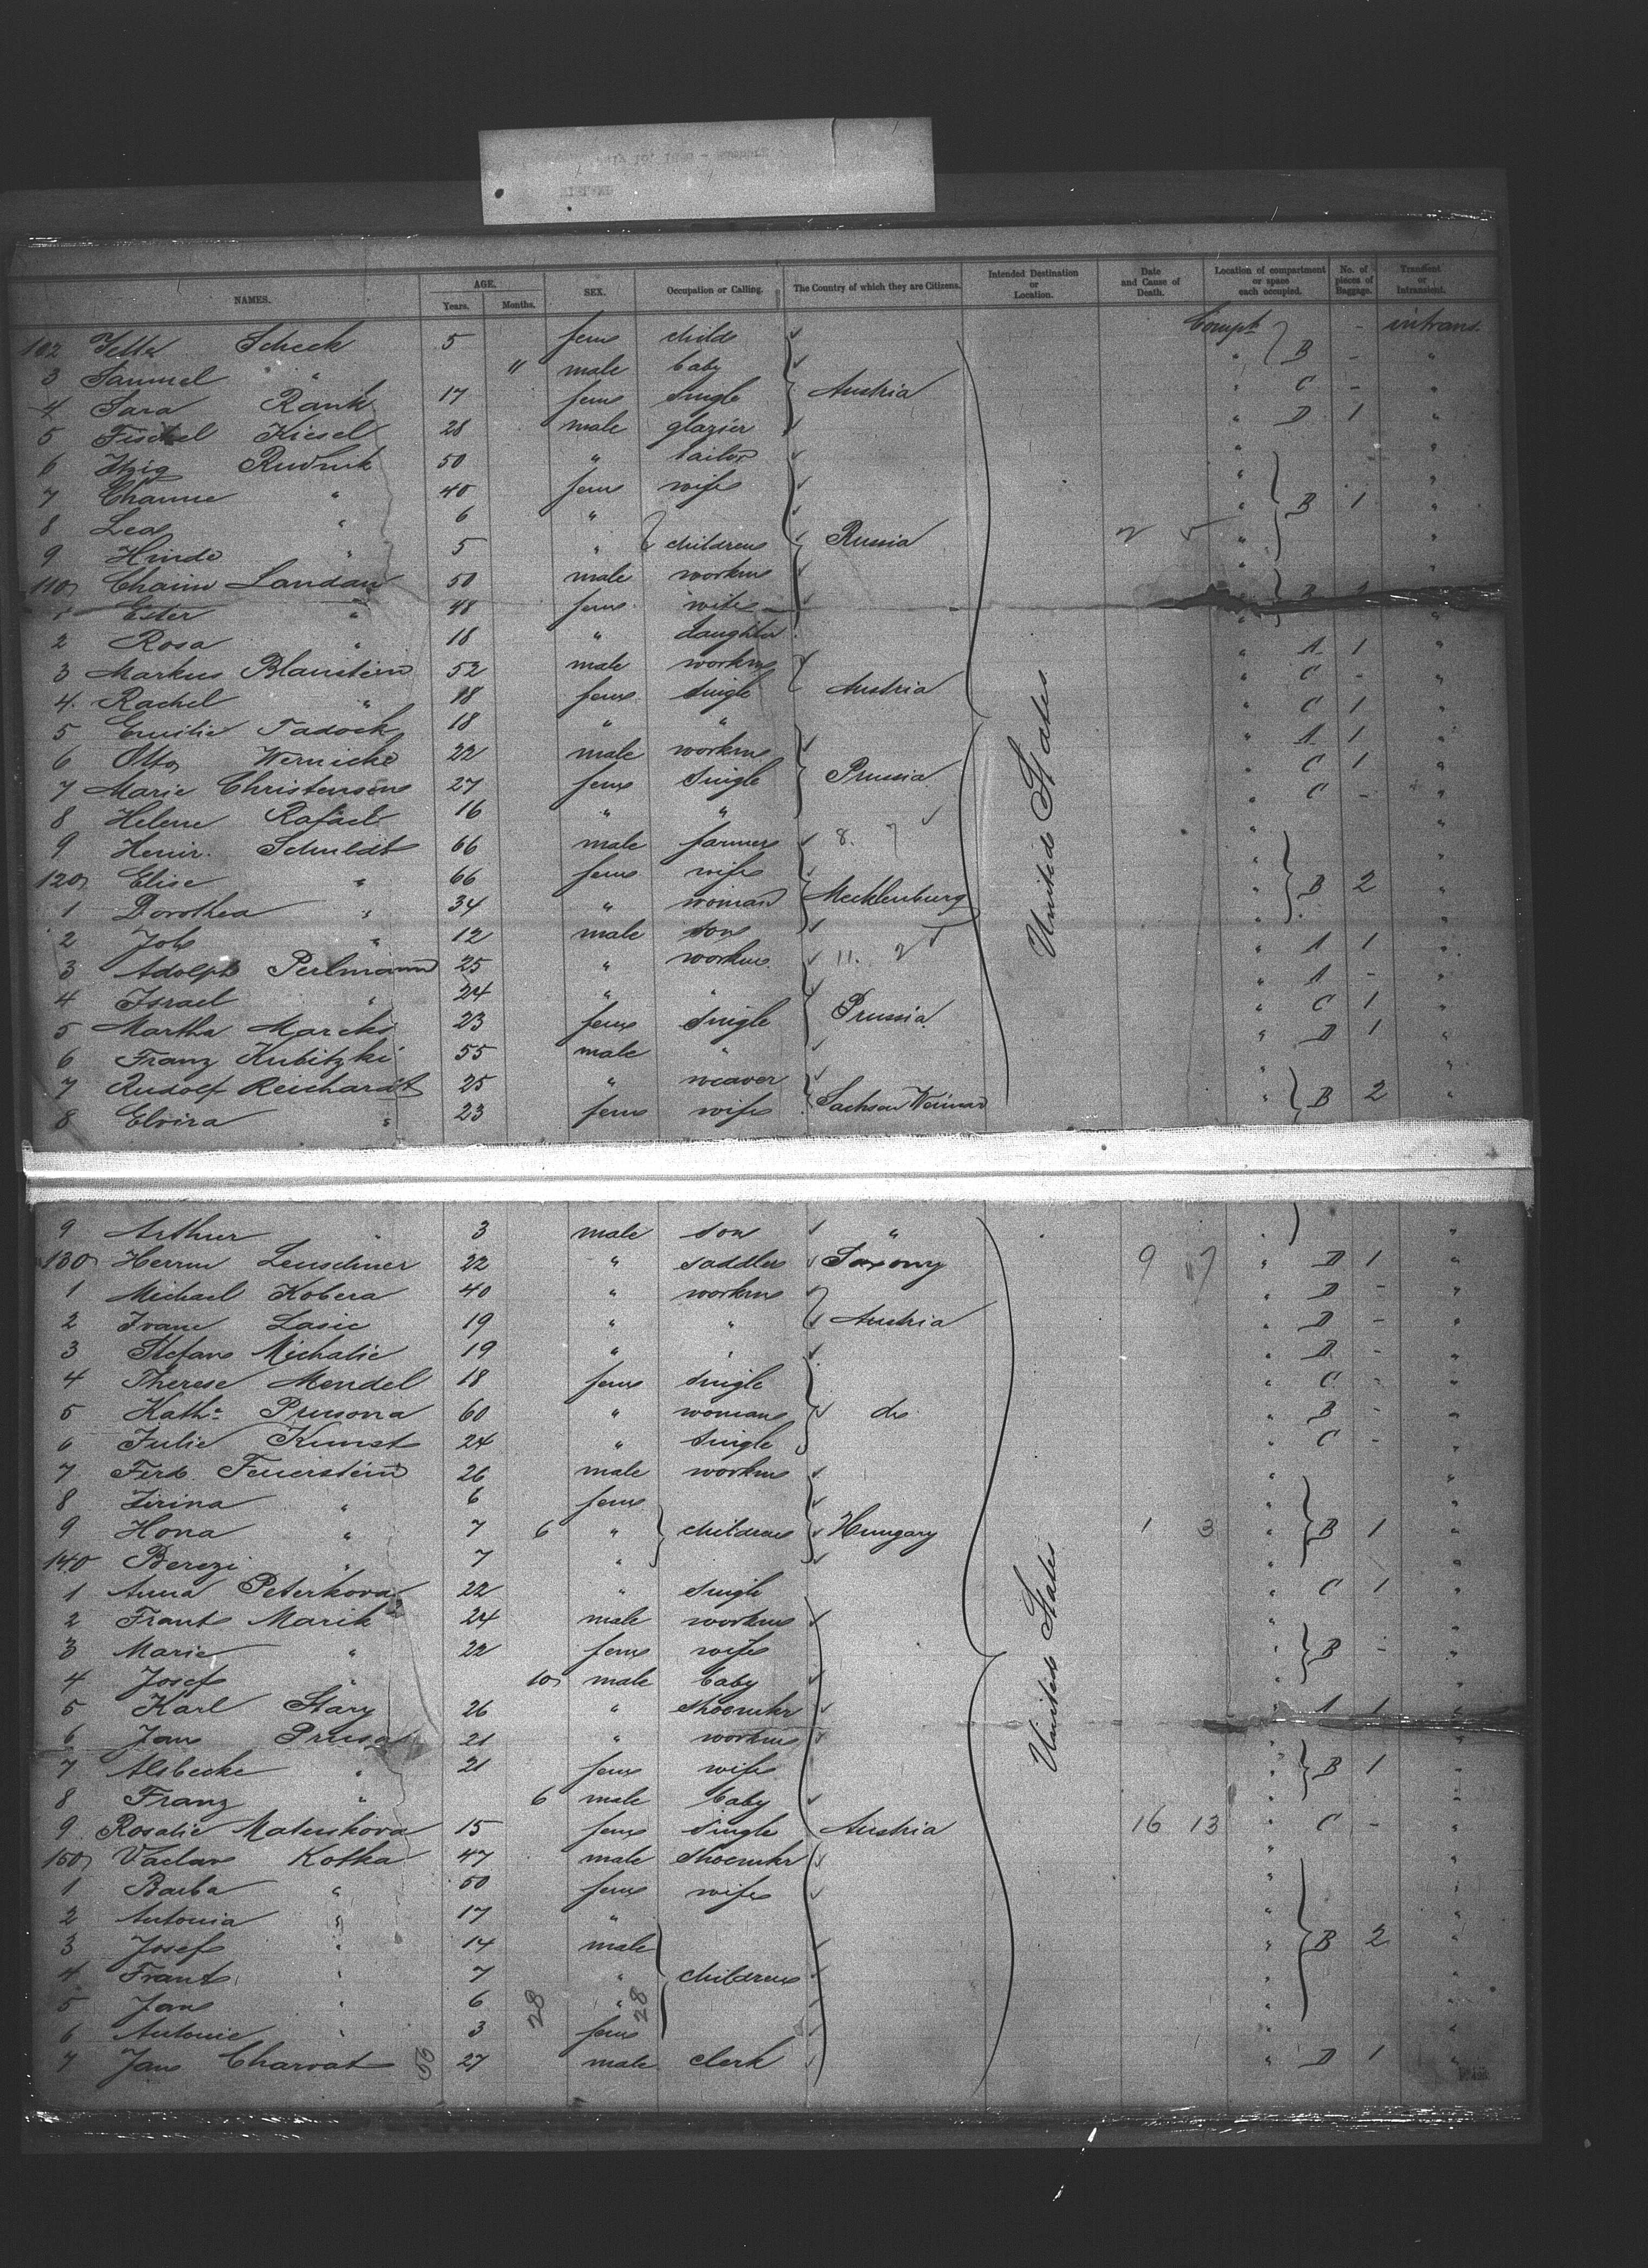 NAMES. AGE. Years. Months. SEX. Occupation or Calling. The Country of which they are Citizens. Intended Destination or Location. Date and Cause of Death. Location of compartment or space each occupied. No. of pieces of Baggage. Transient or Intransient.
102 Scheck 5 fem child Compt B - intrans.
3 Samuel " 11 male baby " - "
4 Sara Rank 17 fem single Austria " C - "
5 Fischel Kiesel 28 male glazier " D 1 "
6 Itzig Rudnik 50 " tailor " "
7 Channe " 40 fem wife " B 1 "
8 Lea " 6 " " "
9 Hinde " 5 " children Russia 2 5 " "
110 Chaim Landau 50 male workm " B "
1 Ester " 48 fem wife " "
2 Rosa " 18 " daughter " "
3 Markus Blaustein 52 male workm " A 1 "
4 Rachel " 18 fem single Austria " C - "
5 Emilie Tadock 18 " " " C 1 "
6 Otto Wernicke 22 male workm " A 1 "
7 Marie Christensen 27 fem single Prussia " C 1 "
8 Helene Rafael 16 " " " C - "
9 Heinr. Schuldt 66 male farmer 8. 7 " "
120 Elise " 66 fem wife " B 2 "
1 Dorothea " 34 " woman Mecklenburg " "
2 Joh " 12 male son " "
3 Adolph Perlmann 25 " workm 11. 2 " A 1 "
4 Israel " 24 " " " A - "
5 Martha Marcks 23 fem single Prussia " C 1 "
6 Franz Kubitzki 55 male " " D 1 "
7 Rudolf Reichardt 25 " weaver " "
8 Elvira " 23 fem wife Sachsen Weimar " B 2 "
United States
9 Arthur " 3 male son " " "
130 Herrm Leuschner 22 " saddler Saxony 9 17 " D 1 "
1 Michael Kobera 40 " workm " D - "
2 Ivan Lasic 19 " " Austria " D - "
3 Stefan Michalic 19 " " " D - "
4 Therese Mendel 18 fem single " C - "
5 Kath. 60 " woman do " B - "
6 Julie Kunst 24 " single " C - "
7 Ferd. Feuerstein 26 male workm " "
8 Zirina " 6 fem " "
9 Hona " 7 6 " children Hungary 1 3 " B 1 "
140 Berezi " 7 " " "
1 Anna Peterkova 22 " single " C 1 "
2 Frant Marik 24 male workm " "
3 Marie " 22 fem wife " B - "
4 Josef " 10 male baby " "
5 Karl Stary 26 " shoemkr " A 1 "
6 Jan Prusa 21 " workm " "
7 " 21 fem wife " B 1 "
8 Franz " 6 male baby " "
9 Rosalie Materkova 15 fem single Austria 16 13 " C - "
150 Vaclav Kotka 47 male shoemkr " "
1 Barba " 50 fem wife " "
2 Antonia " 17 " " "
3 Josef " 14 male " B 2 "
4 Frant " 7 " children " "
5 Jan " 6 28 " 28 " "
6 Antonie " 3 fem " "
7 Jan Charvat 56 27 male clerk " D 1 "
United States